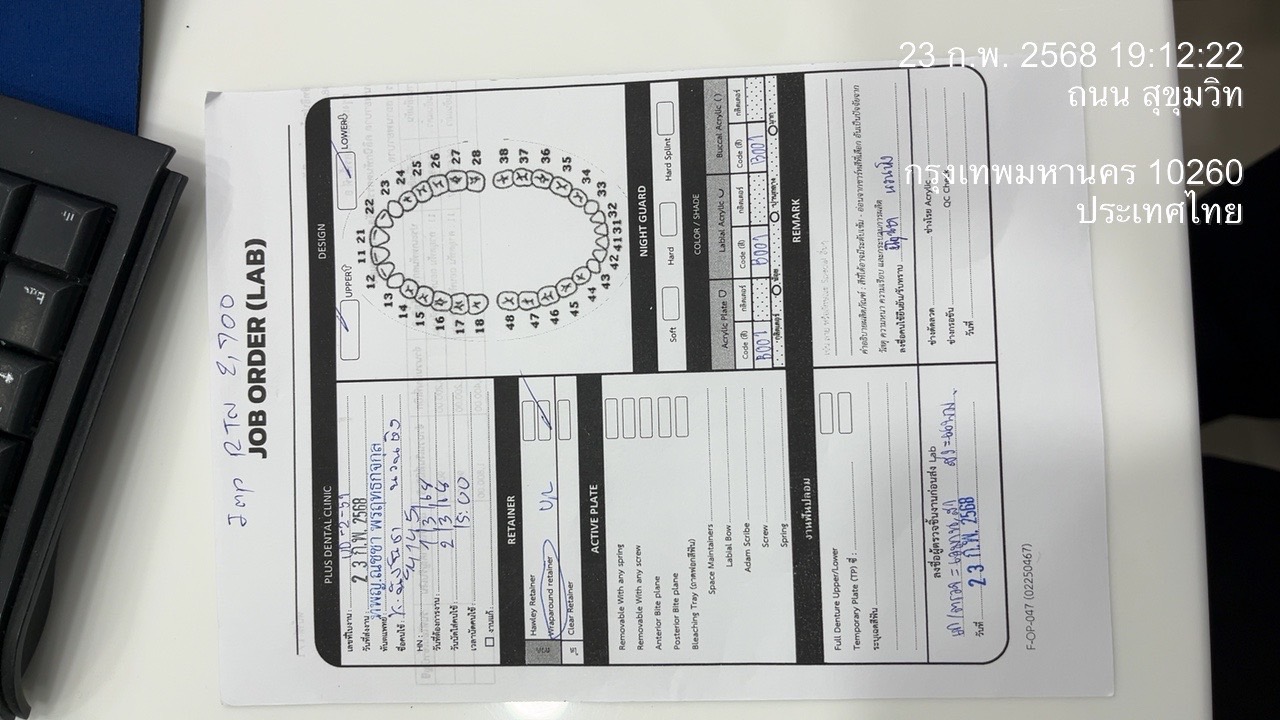 Imp RTN 2,700
JOB ORDER (LAB)
PLUS DENTAL CLINIC
เลขที่ใบงาน : UD-2-59
วันที่ส่งงาน : 23 ก.พ. 2568
ทันตแพทย์ ทพญ.ณชชา พรฤทธกจกุล
ชื่อคนไข้ :
HN : 54145
วันที่ต้องการงาน : 1/3/68
วันนัดใส่คนไข้ : 2/3/68
เวลานัดคนไข้ : 15:00
งานแก้ :
RETAINER
Hawley Retainer
Wraparound retainer U/L
Clear Retainer
ACTIVE PLATE
Removable With any spring
Removable With any screw
Anterior Bite plane
Posterior Bite plane
Bleaching Tray (ถาดฟอกสีฟัน)
Space Maintainers
Labial Bow
Adam Scribe
Screw
Spring
งานฟันปลอม
Full Denture Upper/Lower
Temporary Plate (TP) ซี่ :
ระบุเฉดสีฟัน
ลงชื่อผู้ตรวจชิ้นงานก่อนส่ง Lab
วันที่ 23 ก.พ. 2568
DESIGN
UPPER LOWER
11 21
12 22
13 23
14 24
15 25
16 26
17 27
18 28
48 38
47 37
46 36
45 35
44 34
43 33
42 41 31 32
NIGHT GUARD
Soft Hard Hard Splint
COLOR / SHADE
Acrylic Plate Labial Acrylic Buccal Acrylic ( )
Code (สี) กลิตเตอร์ Code (สี) กลิตเตอร์ Code (สี) กลิตเตอร์
B001 B001 B001
กลิตเตอร์ น้อย ปานกลาง มาก
REMARK
คำอธิบายผลิตภัณฑ์ : สีที่ได้อาจมีระดับเข้ม - อ่อนจากชาร์ทสีที่เลือก อันเป็นปัจจัยจาก
วัสดุ ความหนา ความเรียบ และกระบวนการผลิต
ลงชื่อคนไข้ยืนยัน/รับทราบ
ช่างดัดลวด ช่างโรย Acrylic
ช่างกรอขัด QC Check
วันที่
F-OP-047 (02250467)
23 ก.พ. 2568 19:12:22
ถนน สุขุมวิท
กรุงเทพมหานคร 10260
ประเทศไทย